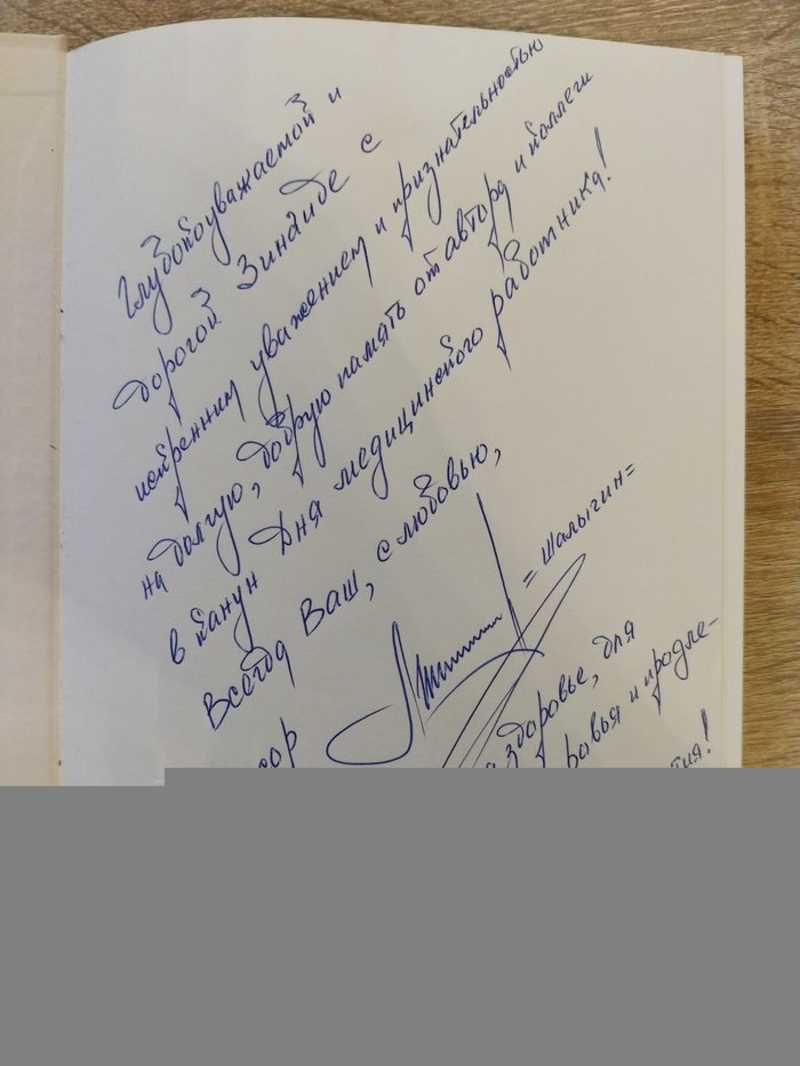 Глубокоуважаемой и
дорогой Зинаиде с
искренним уважением и признательностью
на долгую, добрую память от автора и коллеги
в канун Дня медицинского работника!
Всегда Ваш, с любовью,
= Шалыгин =
сор
здоровье, для
ровья и продле-
тия!